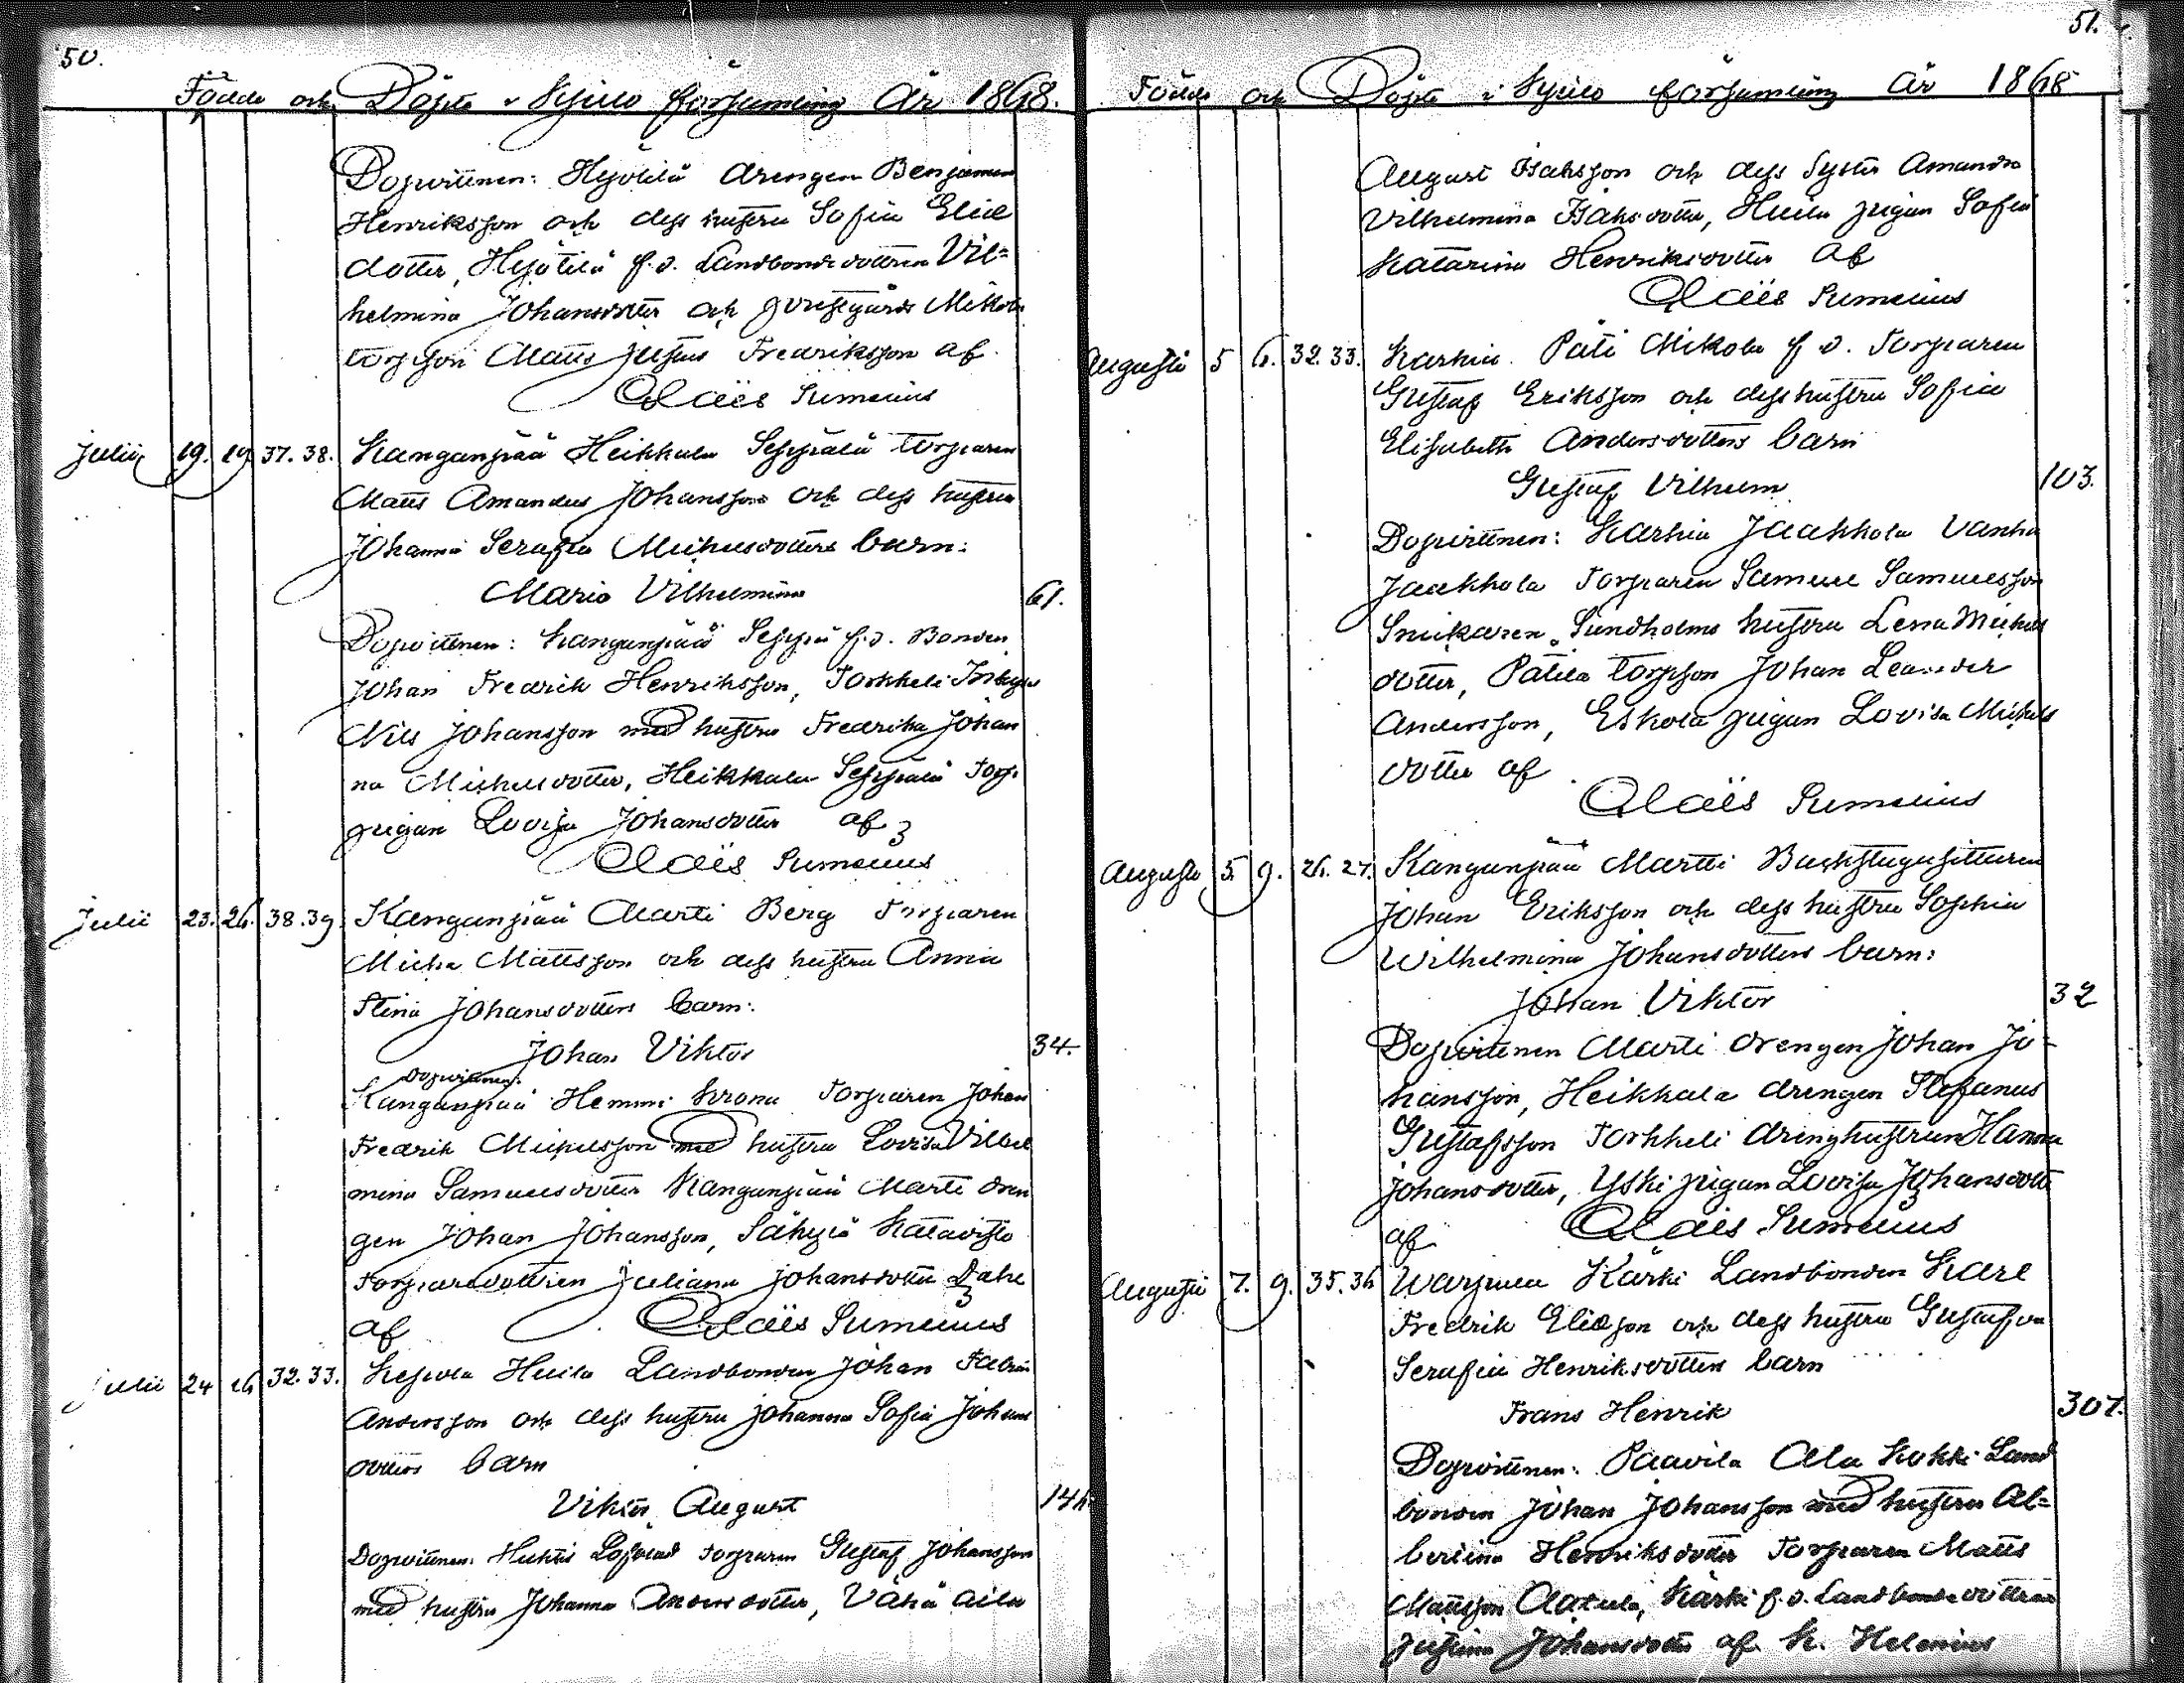 50.
Födde och Döpte i Kjulo församling År 1868.
Dopvittnen: Hyötilä drengen Benjamin
Henriksson och dess hustru Sofia Elias
dotter, Hyötilä f.d. Landbonde dottren Vil-
helmina Johansdotter och Mikola
torpson Matts Justus Fredriksson af
Claës Sumelius
Julii 19. 19. 37. 38. Kanganpää Heikkala Seppälä torparen
Matts Amandus Johansson och dess hustru
Johanna Serafia Michelsdotters barn:
Maria Vilhelmina 61.
Dopvittnen: Kanganpää Seppä f.d. Bonden
Johan Fredrik Henriksson, Torkkeli
Nils Johansson med hustru Fredrika Johan
na Michelsdotter, Heikkala Seppälä Torp.
pigan Lovisa Johansdotter af
Claës Sumelius
Julii 23. 26. 38. 39 Kanganpää Martti Berg Torparen
Micha Mattsson och dess hustru Anna
Stina Johansdotters barn:
Johan Viktor 34.
Dopvittnen:
Kanganpää Hemmi Krona Torparen Johan
Fredrik Michelsson med hustru Lovisa Vilhel
mina Samuelsdotter Kanganpää Martti dren
gen Johan Johansson, Säkylä Katavisto
Torparedottren Juliana Johansdotter Dahl
af Claës Sumelius
Julii 24 26 32. 33. Kepola Huila Landbonden Johan Fabian
Andersson och dess hustru Johanna Sofia Johans
dotters barn
Viktor August 146
Dopvittnen: Huhtis torparen Gustaf Johansson
med hustru Johanna Andersdotter, Vähä Eila
51.
Födde och Döpte i Kjulo församling År 1868
August Isaksson och dess Syster Amanda
Vilhelmina Isaksdotter, Huila pigan Sofia
Katarina Henriksdotter af
Claës Sumelius
Augusti 5 6. 32. 33. Karhia Päti Mikola f d. Torparen
Gustaf Eriksson och dess hustru Sofia
Elisabeth Andersdotters barn
Gustaf Vilhelm 103.
Dopvittnen: Karhia Jaakkola Vanha
Jaakkola Torparen Samuel Samuelsson
Snickaren Sundholms hustru Lena Michels
dotter, Pätilä torpson Johan Leander
Andersson, Eskola pigan Lovisa Michels
dotter af
Claës Sumelius
Augusti 5. 9. 26. 27. Kanganpää Martti Backstugusittaren
Johan Eriksson och dess hustru Sophia
Wilhelmina Johansdotters barn:
Johan Viktor 32
Dopvittnen Martti drengen Johan Jo-
hansson, Heikkala drengen Stefanus
Gustafsson Torkkeli drenghustrun Hanna
Johansdotter, Yski pigan Lovisa Johansdotter
af Claës Sumelius
Augusti 7. 9. 35. 36 Warpula Kärki Landbonden Karl
Fredrik Eliasson och dess hustru Gustafva
Serafia Henriksdotters barn
Frans Henrik 307.
Dopvittnen: Paavila Ala Kokki Land
bonden Johan Johansson med hustru Al-
bertina Henriksdotter Torparen Matts
Mattsson Kärki f.d. Landbonde dottren
Justina Johansdotter af K. Helenius